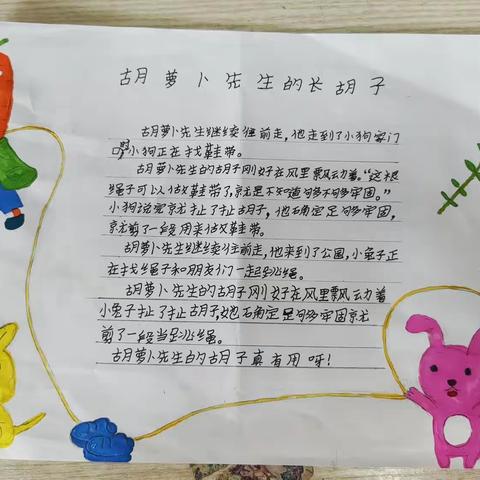 胡萝卜先生的长胡子
胡萝卜先生继续往前走，他走到了小狗家门
时小狗正在找鞋带。
胡萝卜先生的胡子刚好在风里飘动着。“这根
绳子可以做鞋带了，就是不知道够不够牢固。”
小狗说完就扯了扯胡子，他确定足够牢固，
就剪了一段用来做鞋带。
胡萝卜先生继续往前走，他来到了公园，小兔子正
在找绳子和朋友们一起跳绳。
胡萝卜先生的胡子刚好在风里飘动着
小兔子扯了扯胡子，她确定足够牢固就
剪了一段当足跳绳。
胡萝卜先生的胡子真有用呀！